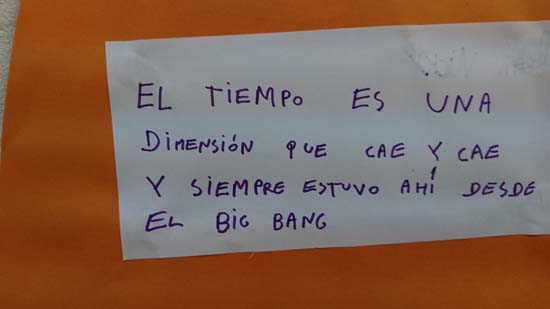 EL TIEMPO ES UNA
DIMENSIÓN QUE CAE Y CAE
Y SIEMPRE ESTUVO AHÍ DESDE
EL BIG BANG